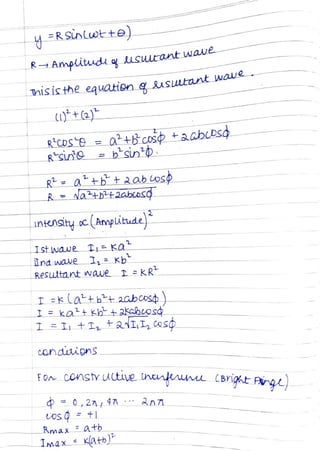 y = R sin(ωt + θ)
R → Amplitude of resultant wave
This is the equation of resultant wave.
(1)² + (2)²
R²cos²θ = a² + b²cos²φ + 2abcosφ
R²sin²θ = b²sin²φ.
R² = a² + b² + 2ab cosφ
R = √a²+b²+2abcosφ
intensity ∝ (Amplitude)²
Ist wave I₁ = Ka²
IInd wave I₂ = Kb²
Resultant wave I = KR²
I = K(a² + b² + 2abcosφ)
I = Ka² + Kb² + 2Kabcosφ
I = I₁ + I₂ + 2√I₁I₂ cosφ
conditions
For constructive interference (Bright Fringe)
φ = 0, 2π, 4π ... 2nπ
cosφ = +1
Rmax = a+b
Imax = K(a+b)²